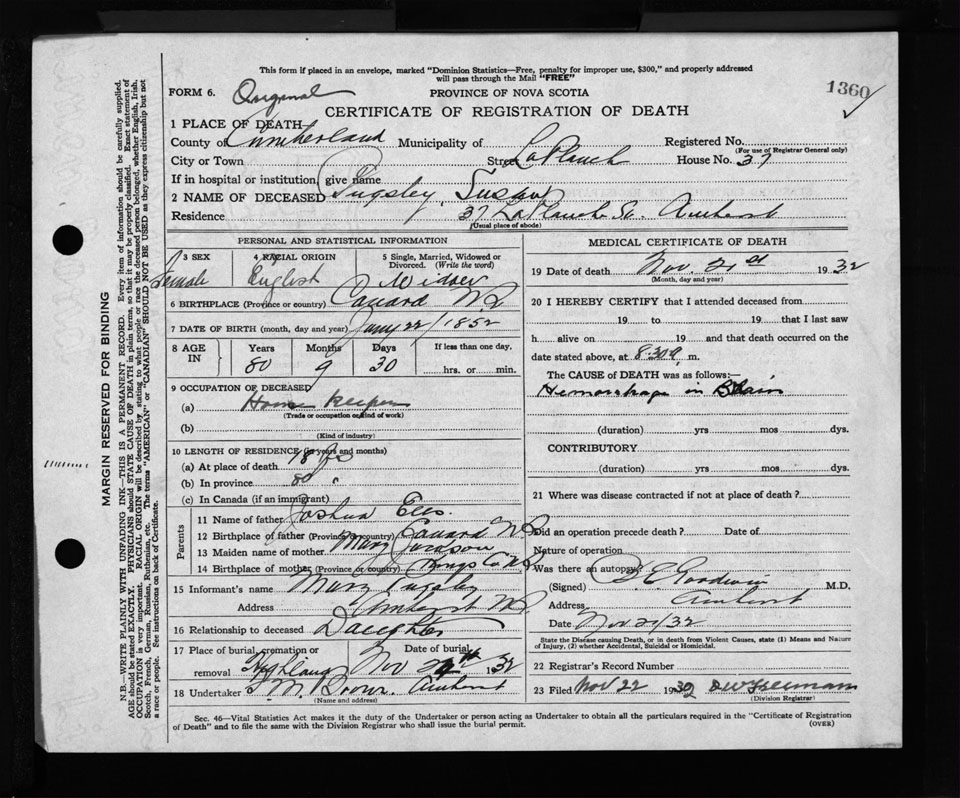 This form if placed in an envelope, marked "Dominion Statistics—Free, penalty for improper use, $300," and properly addressed
will pass through the Mail "FREE"
FORM 6. PROVINCE OF NOVA SCOTIA 1360
CERTIFICATE OF REGISTRATION OF DEATH
1 PLACE OF DEATH
County of Cumberland Municipality of Registered No.
(For use of Registrar General only)
City or Town Street LaPlanch House No. 37
If in hospital or institution give name
2 NAME OF DECEASED Pugsley, Susan
Residence 37 LaPlanch St. Amherst
(Usual place of abode)
PERSONAL AND STATISTICAL INFORMATION
3 SEX 4 RACIAL ORIGIN 5 Single, Married, Widowed or
Divorced. (Write the word)
Female English Widow
6 BIRTHPLACE (Province or country) Canard N.S
7 DATE OF BIRTH (month, day and year) Jany 22/1852
8 AGE IN Years Months Days If less than one day,
80 9 30 hrs. or min.
9 OCCUPATION OF DECEASED
(a) House keeper
(Trade or occupation or kind of work)
(b)
(Kind of industry)
10 LENGTH OF RESIDENCE (in years and months)
(a) At place of death 18
(b) In province 80 "
(c) In Canada (if an immigrant)
Parents
11 Name of father Joshua
12 Birthplace of father (Province or country) Canard N.S
13 Maiden name of mother Mary
14 Birthplace of mother (Province or country) Kings Co N.S
15 Informant's name Mary Pugsley
Address Amherst N.S
16 Relationship to deceased Daughter
17 Place of burial, cremation or removal Date of burial
Highland Nov 1932
18 Undertaker Brown. Amherst
(Name and address)
MEDICAL CERTIFICATE OF DEATH
19 Date of death Nov. 1932
(Month, day and year)
20 I HEREBY CERTIFY that I attended deceased from
19 to 19 that I last saw
h alive on 19 and that death occurred on the
date stated above, at 8.30 m.
The CAUSE of DEATH was as follows:—
Hemorrhage in Brain
(duration) yrs mos dys.
CONTRIBUTORY
(duration) yrs. mos. dys.
21 Where was disease contracted if not at place of death?
Did an operation precede death? Date of
Nature of operation
Was there an autopsy?
(Signed) Goodwin M.D.
Address Amherst
Date Nov 21/32
State the Disease causing Death, or in death from Violent Causes, state (1) Means and Nature
of Injury, (2) whether Accidental, Suicidal or Homicidal.
22 Registrar's Record Number
23 Filed Nov 22 1932
(Division Registrar)
Sec. 46—Vital Statistics Act makes it the duty of the Undertaker or person acting as Undertaker to obtain all the particulars required in the "Certificate of Registration
of Death" and to file the same with the Division Registrar who shall issue the burial permit. (OVER)
MARGIN RESERVED FOR BINDING
N.B.—WRITE PLAINLY WITH UNFADING INK—THIS IS A PERMANENT RECORD. Every item of information should be carefully supplied.
AGE should be stated EXACTLY. PHYSICIANS should STATE CAUSE OF DEATH in plain terms, so that it may be properly classified. Exact statement of
OCCUPATION is very important. RACIAL ORIGIN will be described by stating to what people or race the deceased person belonged, whether English, Irish,
Scotch, French, German, Russian, Ruthenian, etc. The terms "AMERICAN" or "CANADIAN" SHOULD NOT BE USED as they express citizenship but not
a race or people. See instructions on back of Certificate.